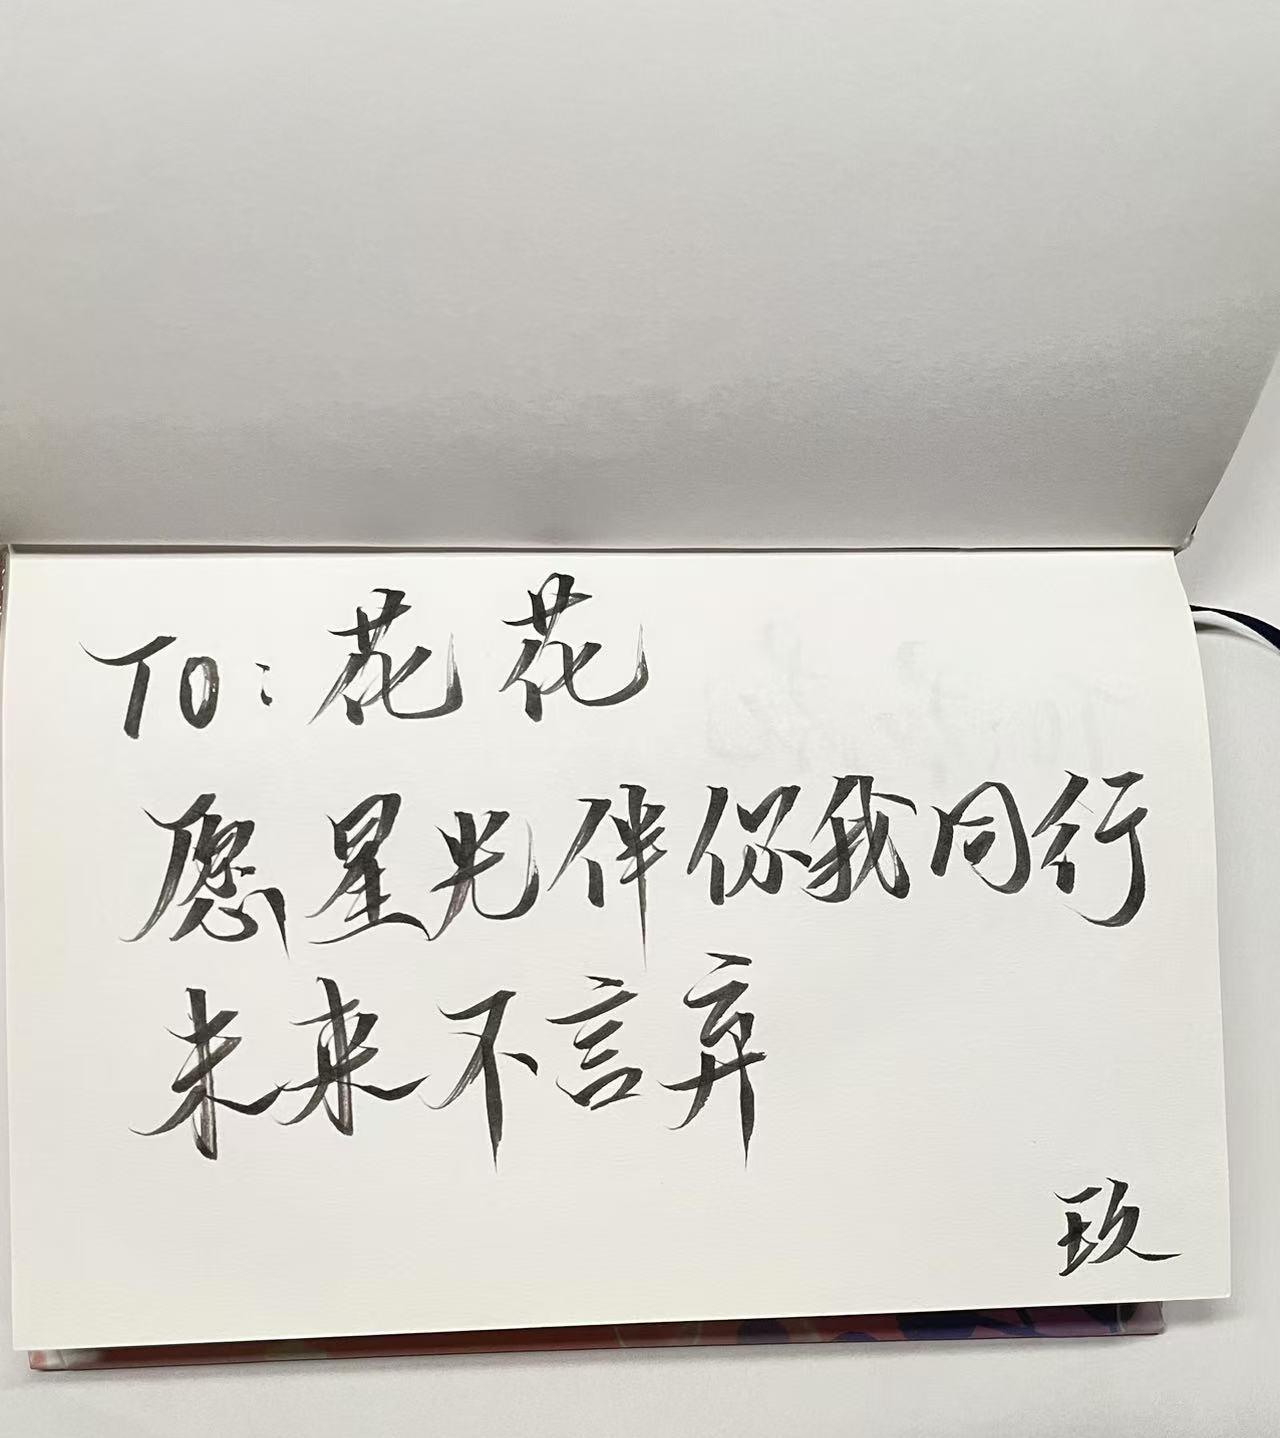 TO：花花
愿星光伴你我同行
未来不言弃
玖